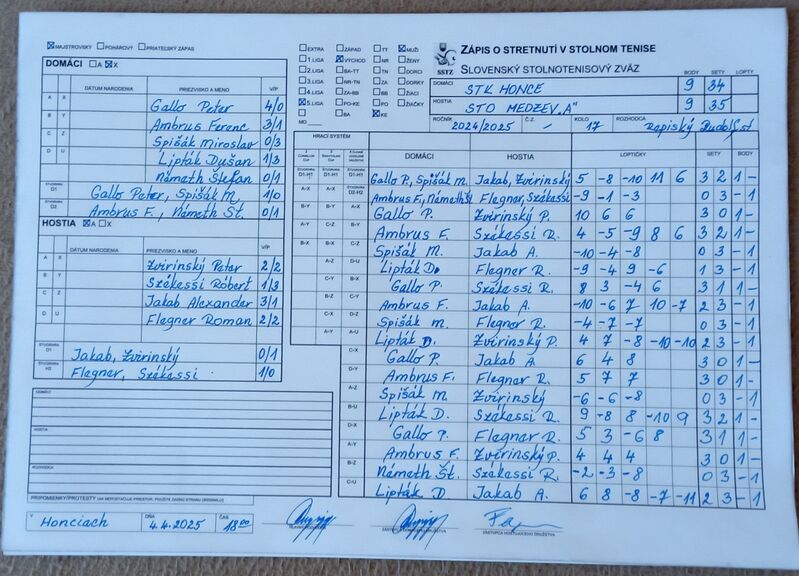 MAJSTROVSKÝ POHÁROVÝ PRIATEĽSKÝ ZÁPAS
DOMÁCI A X
DÁTUM NARODENIA PRIEZVISKO A MENO V/P
A X Gallo Peter 4/0
B Y Ambrus Ferenc 3/1
C Z Spišák Miroslav 0/3
D U Lipták Dušan 1/3
Németh Štefan 0/1
ŠTVORHRA D1 Gallo Peter, Spišák M. 1/0
ŠTVORHRA D2 Ambrus F., Németh Št. 0/1
HOSTIA A X
DÁTUM NARODENIA PRIEZVISKO A MENO V/P
A X Zvirinský Peter 2/2
B Y Székessi Robert 1/3
C Z Jakab Alexander 3/1
D U Flegner Roman 2/2
ŠTVORHRA Jakab, Zvirinský 0/1
ŠTVORHRA H2 Flegner, Székessi 1/0
DOMÁCI
HOSTIA
ROZHODCA
V Honciach DŇA 4.4.2025 ČAS 18⁰⁰
EXTRA ZÁPAD TT MUŽI
1. LIGA VÝCHOD NR ŽENY
2. LIGA BA-TT TN DORCI
3. LIGA NR-TN ZA DORKY
4. LIGA ZA-BB BB ŽIACI
5. LIGA PO-KE PO ŽIAČKY
BA KE
MO
SSTZ
ZÁPIS O STRETNUTÍ V STOLNOM TENISE
SLOVENSKÝ STOLNOTENISOVÝ ZVÄZ
BODY SETY LOPTY
DOMÁCI STK HONCE 9 34
HOSTIA STO MEDZEV „A" 9 35
ROČNÍK 2024/2025 Č.Z. – KOLO 17 ROZHODCA
HRACÍ SYSTÉM
DOMÁCI HOSTIA LOPTIČKY SETY BODY
Gallo P., Spišák M. Jakab, Zvirinský 5 -8 -10 11 6 3 2 1 -
Ambrus F., Németh Št Flegner, Székessi -9 -1 -3 0 3 - 1
Gallo P. Zvirinský P. 10 6 6 3 0 1 -
Ambrus F. Székessi R. 4 -5 -9 8 6 3 2 1 -
Spišák M. Jakab A. -10 -4 -8 0 3 - 1
Lipták D. Flegner R. -9 -4 9 -6 1 3 - 1
Gallo P. Székessi R. 8 3 -4 6 3 1 1 -
Ambrus F. Jakab A. -10 -6 7 10 -7 2 3 - 1
Spišák M. Flegner R. -4 -7 -7 0 3 - 1
Lipták D. Zvirinský P. 4 7 -8 -10 -10 2 3 - 1
Gallo P. Jakab A. 6 4 8 3 0 1 -
Ambrus F. Flegner R. 5 7 7 3 0 1 -
Spišák M. Zvirinský -6 -6 -8 0 3 - 1
Lipták D. Székessi R. 9 -8 8 -10 9 3 2 1 -
Gallo P. Flegner R. 5 3 -6 8 3 1 1 -
Ambrus F. Zvirinský P. 4 4 4 3 0 1 -
Németh Št. Székessi R. -2 -3 -8 0 3 - 1
Lipták D. Jakab A. 6 8 -8 -7 -11 2 3 - 1